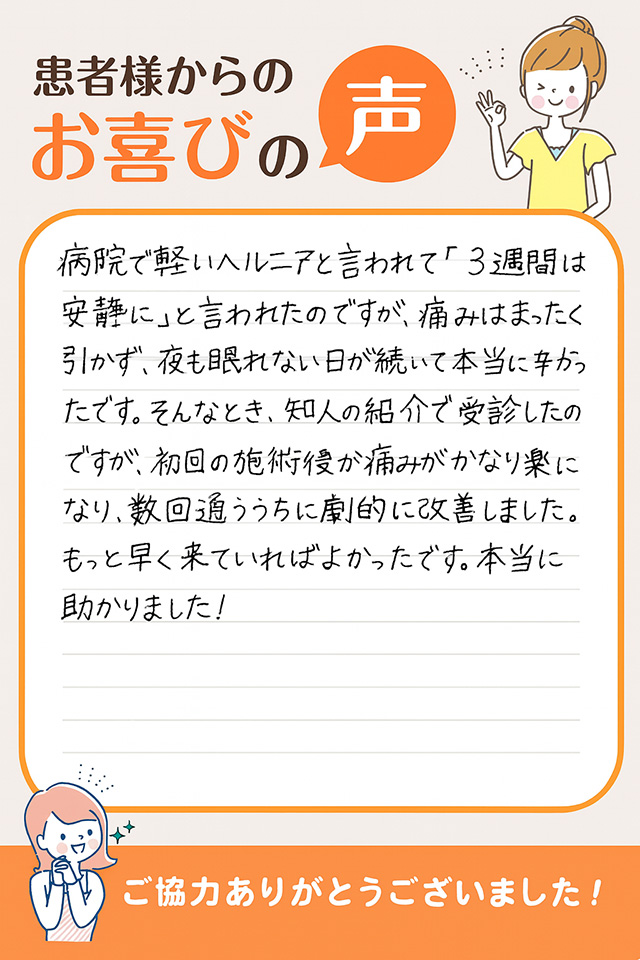 患者様からの
お喜びの声
病院で軽いヘルニアと言われて「3週間は
安静に」と言われたのですが、痛みはまったく
引かず、夜も眠れない日が続いて本当に辛かっ
たです。そんなとき、知人の紹介で受診したの
ですが、初回の施術後が痛みがかなり楽に
なり、数回通ううちに劇的に改善しました。
もっと早く来ていればよかったです。本当に
助かりました！
ご協力ありがとうございました！